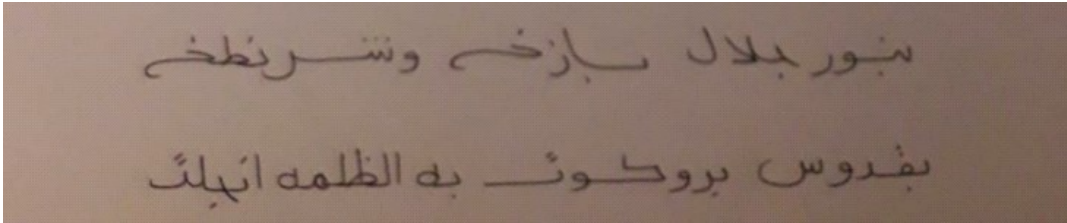 بنور جلال بازخ وشرنطخ
بقدوس بروكوت به الظلمه انجلت